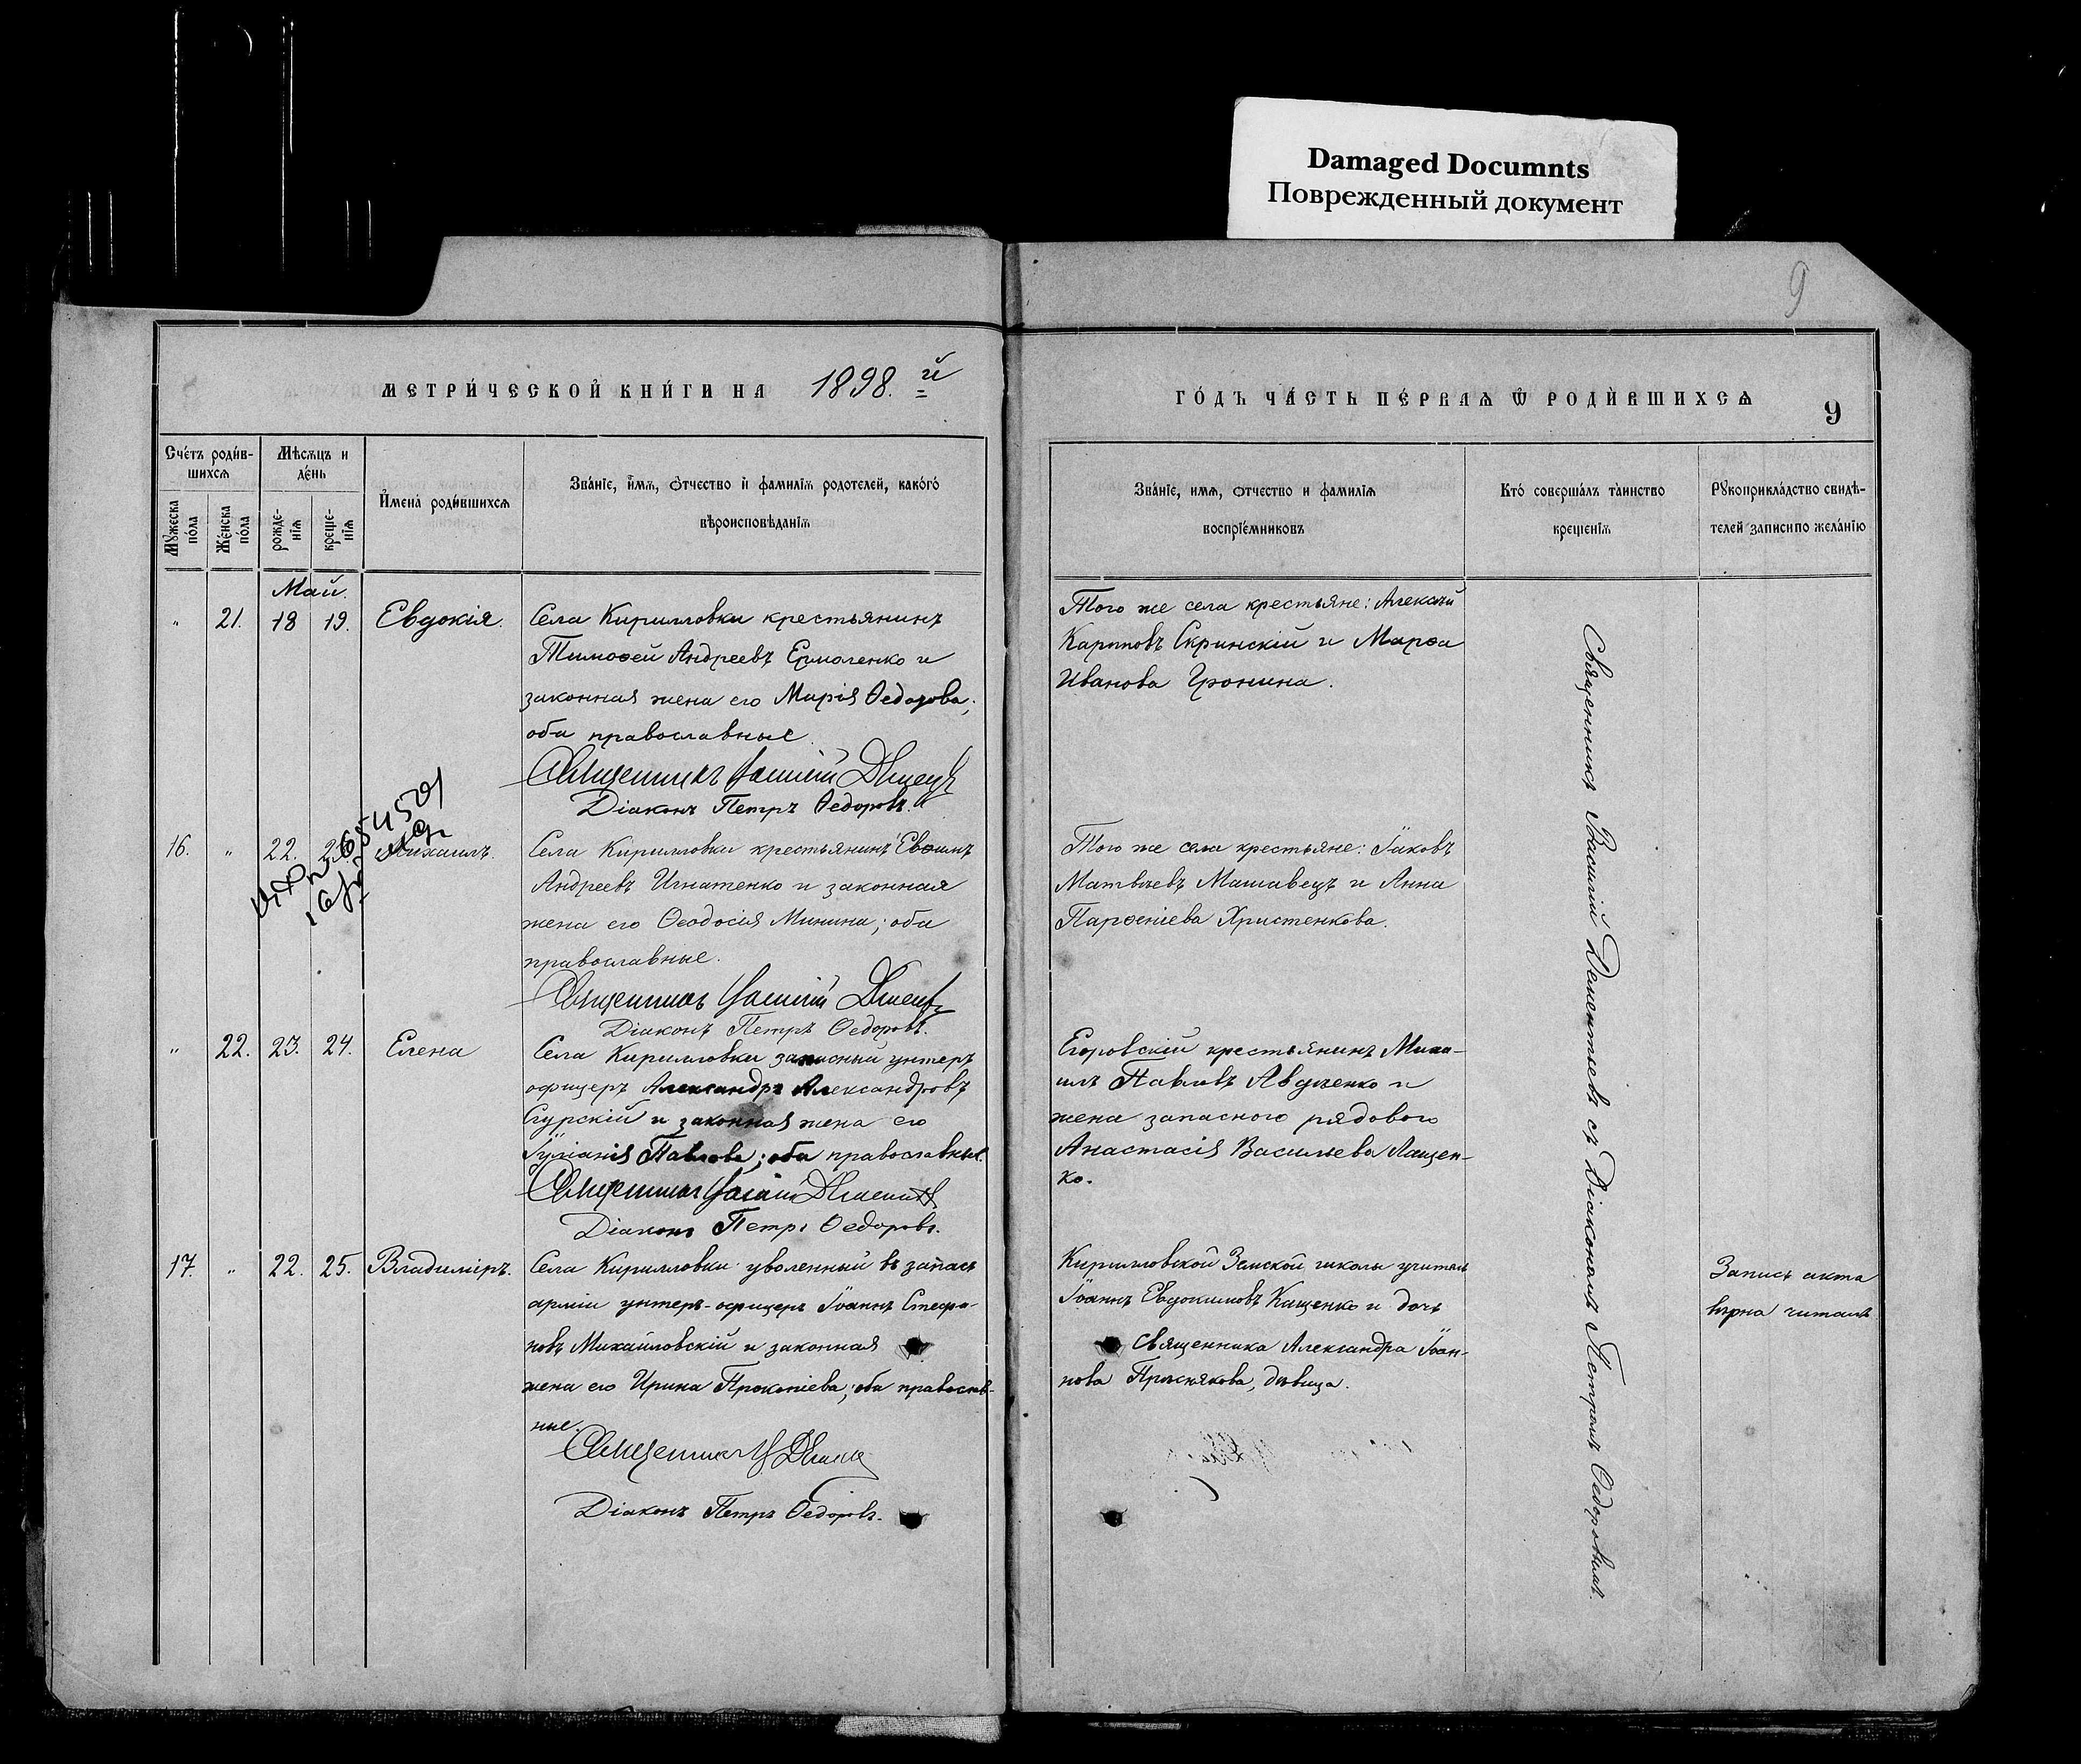 Damaged Documnts
Поврежденный документ
9
МЕТРИ́ЧЕСКОЙ КНИ́ГИ НА 1898.й
ГО́ДЪ ЧА́СТЬ ПЕ́РВАѦ Ѿ РОДИ́ВШИХСѦ
9
Сче́тъ роди́в-
шихсѧ
Мѣсѧцъ и
де́нь
Мꙋжеска
по́ла
Же́нска
по́ла
рожде-
нїѧ
креще-
нїѧ
И҆мена̀ роди́вшихсѧ
Зва́нїе, и҆́мѧ, ѻ҆́тчество и҆ фамилїѧ родотелей, како́гѡ
вѣроисповѣданїѧ
Зва́нїе, имѧ, ѻтчество и фамилїѧ
воспрїе́мниковъ
Кто̀ соверша́лъ та̀инство
креще́нїѧ
Рꙋкоприкла́дство свидѣ-
телей записи по жела́нїю
Май.
" 21. 18 19. Евдокія.
Села Кирилловки крестьянинъ
Тимоѳей Андреевъ Ермоленко и
законная жена его Марія Ѳедорова;
оба православные
Священникъ Василій
Діаконъ Петръ Ѳедоровъ.
Того же села крестьяне: Алексѣй
Карповъ Скринскій и Марѳа
Иванова Гронина.
16. " 22. Михаилъ.
Села Кирилловки крестьянинъ Евѳимъ
Андреевъ Игнатенко и законная
жена его Ѳеодосія Минина; оба
православные.
Священникъ Василій
Діаконъ Петръ Ѳедоровъ.
Того же села крестьяне: Іаковъ
Матвѣевъ Машавецъ и Анна
Парѳеніева Христенкова.
" 22. 23. 24. Елена
Села Кирилловки запасный унтеръ
офицеръ Александръ Александровъ
Сгурскій и законная жена его
Іуліанія Павлова; оба православные.
Священникъ Василій
Діаконъ Петръ Ѳедоровъ.
Егоровскій крестьянинъ Миха-
илъ Павловъ Авдѣенко и
жена запасного рядового
Анастасія Васильева Лащен-
ко.
17. " 22. 25. Владиміръ.
Села Кирилловки уволенный въ запасъ
арміи унтеръ-офицеръ Іоаннъ Стефа-
новъ Михайловскій и законная
жена его Ирина Прокопіева; оба православ-
ные.
Священникъ В
Діаконъ Петръ Ѳедоровъ.
Кирилловской Земской школы учитель
Іоаннъ Евдокимовъ Кищенко и дочь
священника Александра Іоан-
нова Прѣснякова, дѣвица.
Священникъ Василій Дементьевъ съ Діакономъ Петромъ Ѳедоровымъ.
Запись акта
вѣрна читалъ